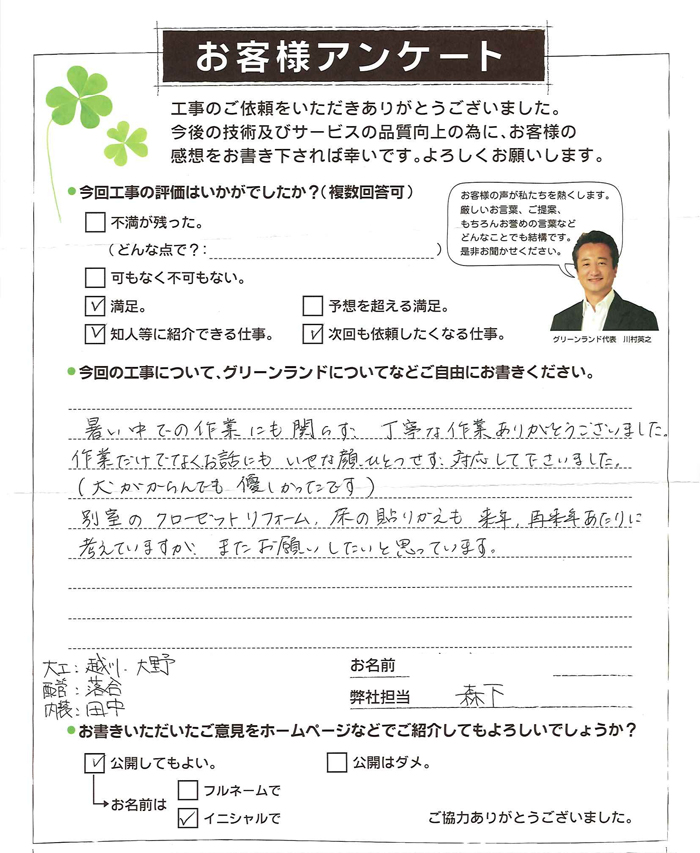 お客様アンケート
工事のご依頼をいただきありがとうございました。
今後の技術及びサービスの品質向上の為に、お客様の
感想をお書き下されば幸いです。よろしくお願いします。
今回工事の評価はいかがでしたか？(複数回答可)
不満が残った。
(どんな点で？: )
可もなく不可もない。
満足。
予想を超える満足。
知人等に紹介できる仕事。
次回も依頼したくなる仕事。
お客様の声が私たちを熱くします。
厳しいお言葉、ご提案、
もちろんお誉めの言葉など
どんなことでも結構です。
是非お聞かせください。
グリーンランド代表 川村英之
今回の工事について、グリーンランドについてなどご自由にお書きください。
暑い中での作業にも関らず、丁寧な作業ありがとうございました。
作業だけでなくお話にも いやな顔ひとつせず、対応して下さいました。
(犬がからんでも優しかったです)
別室のクローゼットリフォーム、床の貼りかえも 来年、再来年あたりに
考えていますが、またお願いしたいと思っています。
大工: 越川・大野
落合
内装: 田中
お名前
弊社担当 森下
お書きいただいたご意見をホームページなどでご紹介してもよろしいでしょうか？
公開してもよい。
公開はダメ。
お名前は
フルネームで
イニシャルで
ご協力ありがとうございました。